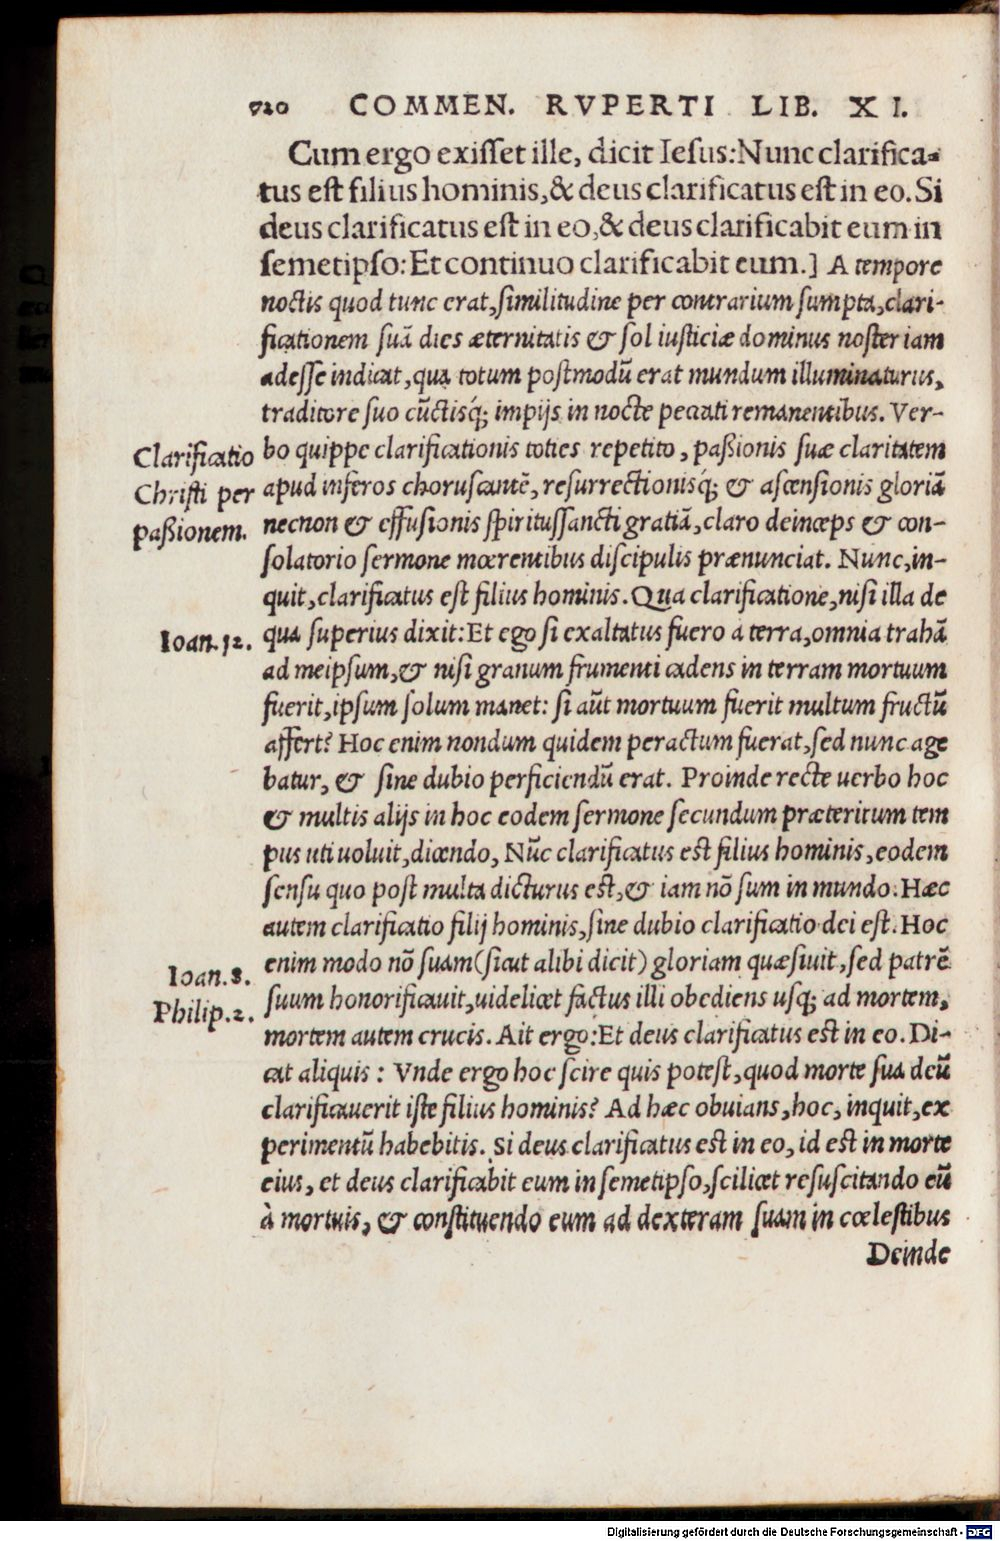 720 COMMEN. RVPERTI LIB. XI.
Cum ergo exisset ille, dicit Iesus: Nunc clarifica-
tus est filius hominis, & deus clarificatus est in eo. Si
deus clarificatus est in eo, & deus clarificabit eum in
semetipso: Et continuo clarificabit eum.] A tempore
noctis quod tunc erat, similitudine per contrarium sumpta, clari-
ficationem suā dies æternitatis & sol iusticiæ dominus noster iam
adesse indicat, qua totum postmodū erat mundum illuminaturus,
traditore suo cūctisq; impijs in nocte peccati remanentibus. Ver-
Clarificatio bo quippe clarificationis toties repetito, paßionis suæ claritatem
Christi per apud inferos choruscantē, resurrectionisq; & ascensionis gloriā
paßionem. necnon & effusionis spiritussancti gratiā, claro deinceps & con-
solatorio sermone mœrentibus discipulis prænunciat. Nunc, in-
quit, clarificatus est filius hominis. Qua clarificatione, nisi illa de
Ioan. 12. qua superius dixit: Et ego si exaltatus fuero a terra, omnia trahā
ad meipsum, & nisi granum frumenti cadens in terram mortuum
fuerit, ipsum solum manet: si aūt mortuum fuerit multum fructū
affert? Hoc enim nondum quidem peractum fuerat, sed nunc age
batur, & sine dubio perficiendū erat. Proinde recte uerbo hoc
& multis alijs in hoc eodem sermone secundum præteritum tem
pus uti uoluit, dicendo, Nūc clarificatus est filius hominis, eodem
sensu quo post multa dicturus est, & iam nō sum in mundo. Hæc
autem clarificatio filij hominis, sine dubio clarificatio dei est. Hoc
Ioan. 8. enim modo nō suam (sicut alibi dicit) gloriam quæsiuit, sed patrē
Philip. 2. suum honorificauit, uidelicet factus illi obediens usq; ad mortem,
mortem autem crucis. Ait ergo: Et deus clarificatus est in eo. Di-
cat aliquis: Vnde ergo hoc scire quis potest, quod morte sua deū
clarificauerit iste filius hominis? Ad hæc obuians, hoc, inquit, ex
perimentū habebitis. Si deus clarificatus est in eo, id est in morte
eius, et deus clarificabit eum in semetipso, scilicet resuscitando eū
à mortuis, & constituendo eum ad dexteram suam in cœlestibus
Deinde
Digitalisierung gefördert durch die Deutsche Forschungsgemeinschaft - DFG